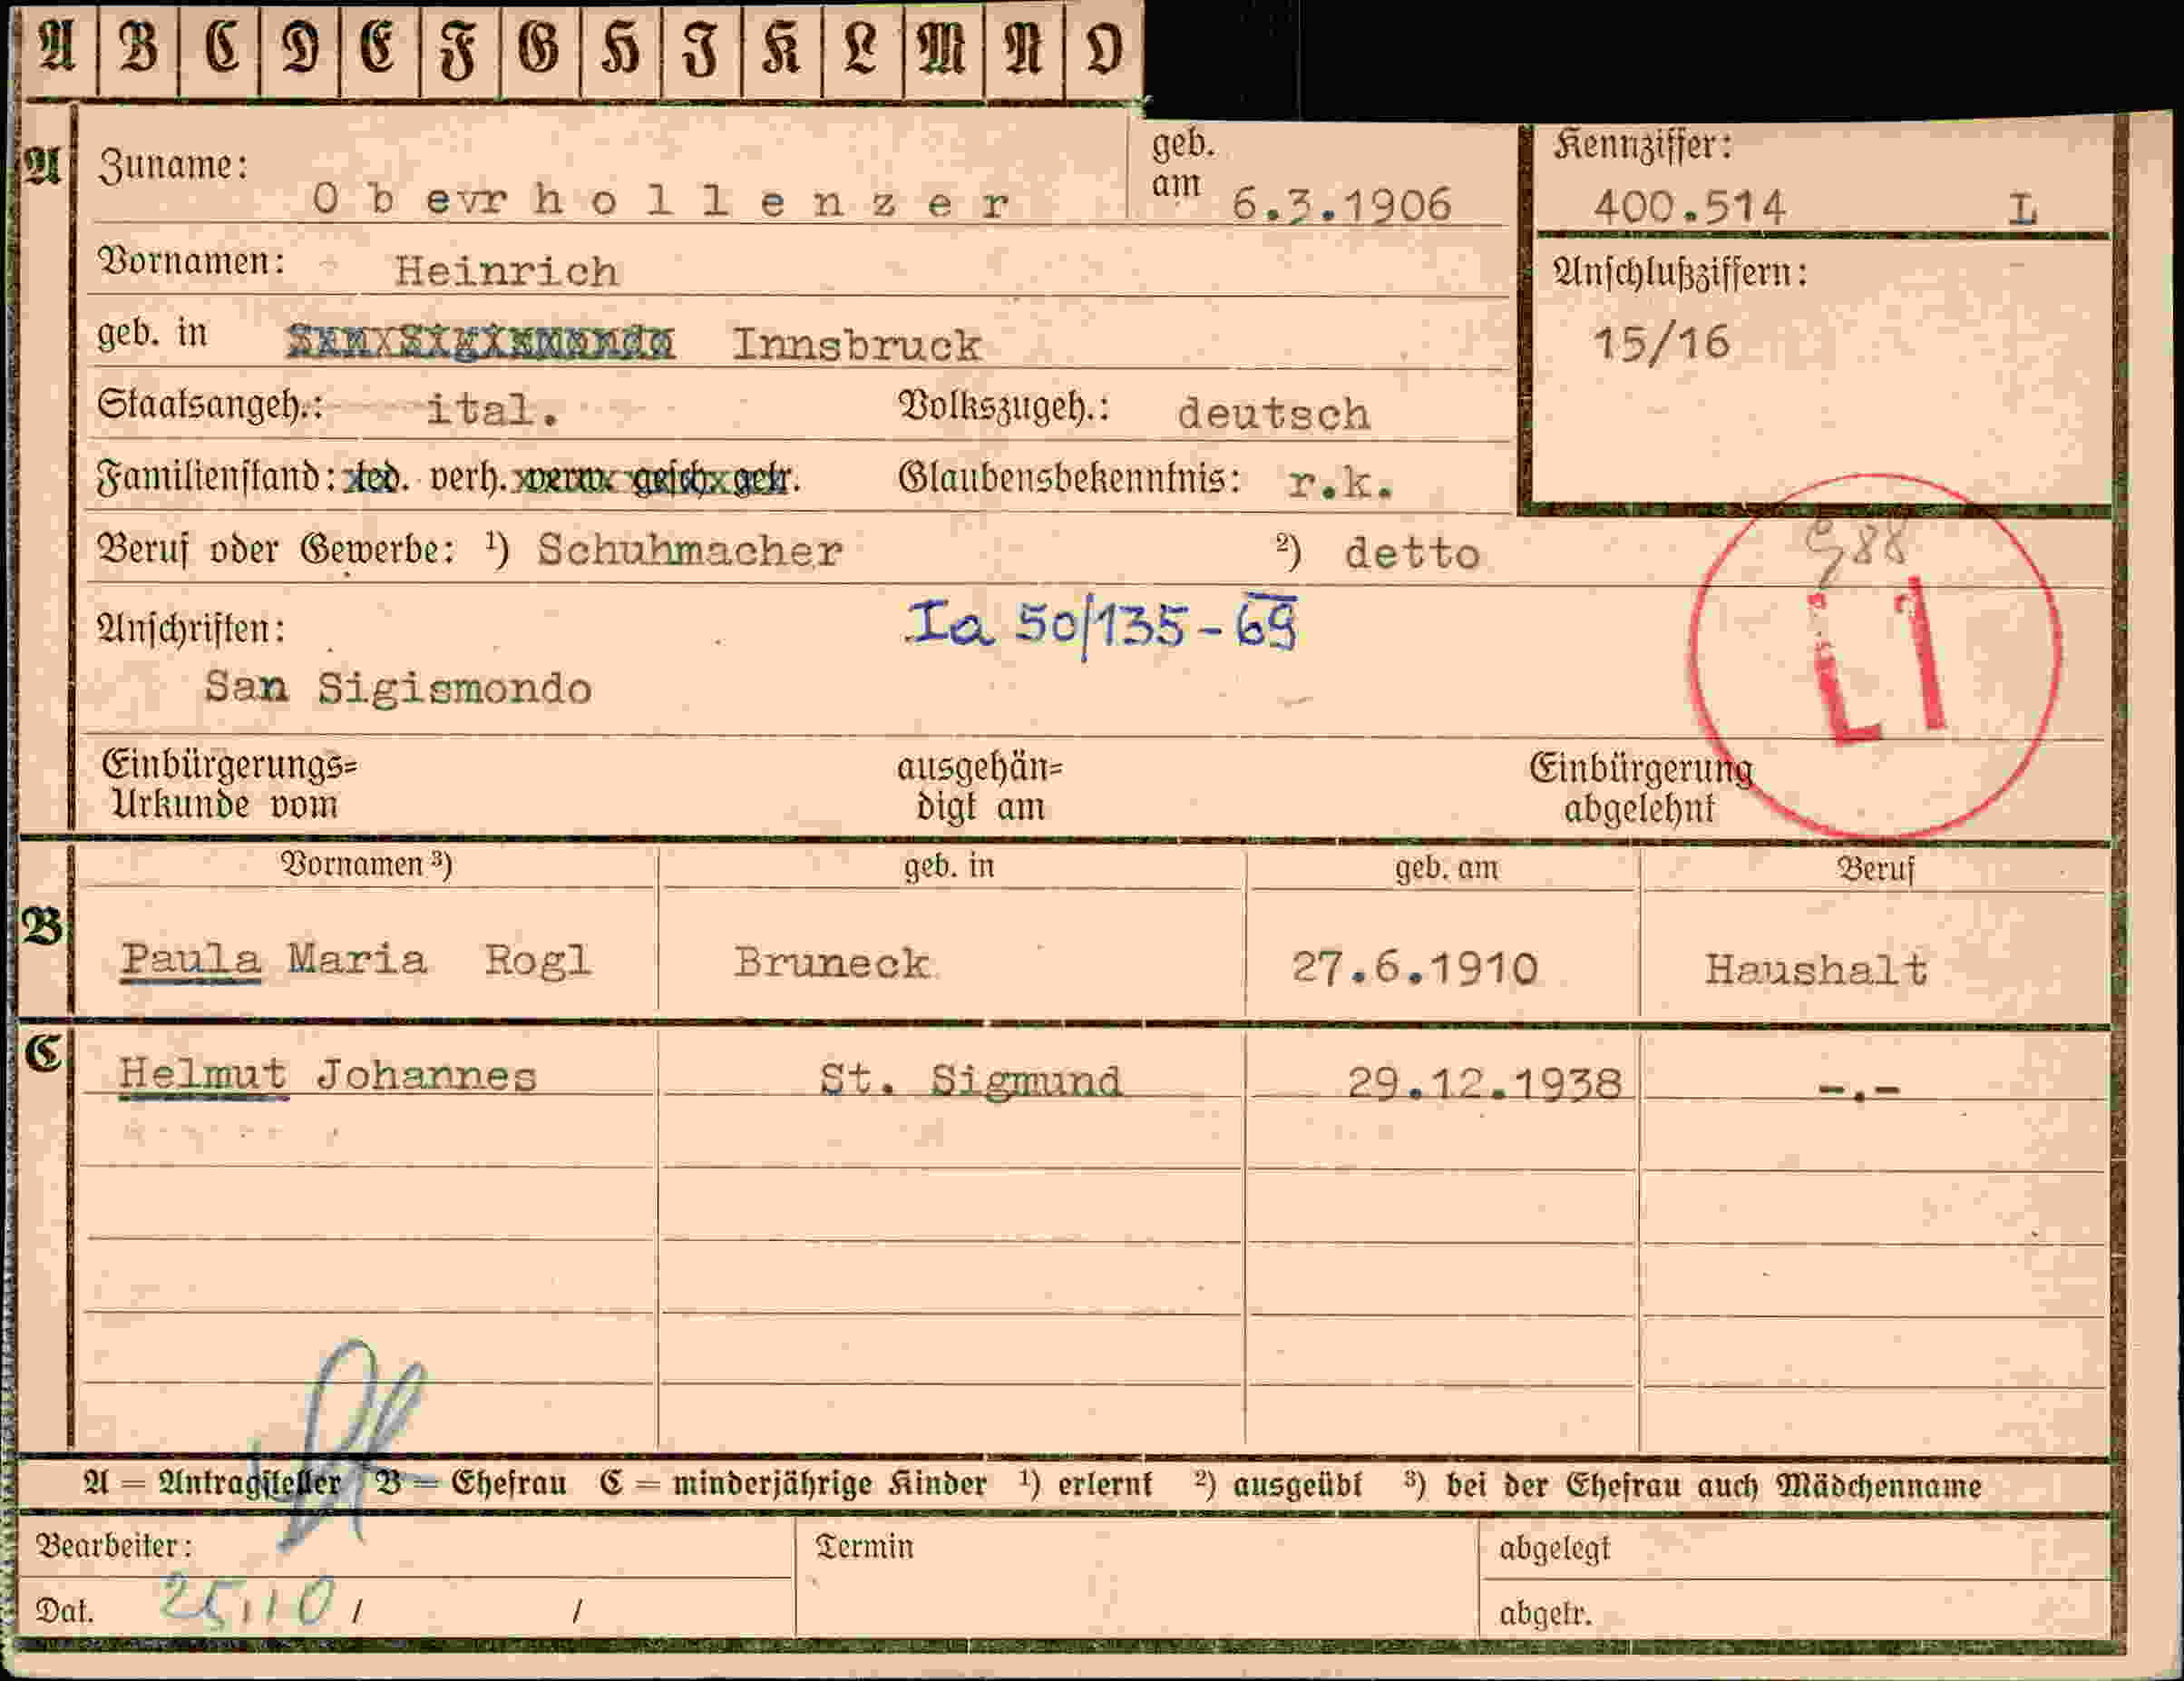 A B C D E F G H I K L M N O
A Zuname: Obevrhollenzer geb. am 6.3.1906 Kennziffer: 400.514 L
Vornamen: Heinrich Anschlußziffern:
geb. in San Sigismondo Innsbruck 15/16
Staatsangeh.: ital. Volkszugeh.: deutsch
Familienstand: led. verh. verw. gesch. getr. Glaubensbekenntnis: r.k.
Beruf oder Gewerbe: ¹) Schuhmacher ²) detto
988
Anschriften: Ia 50/135-69
San Sigismondo
Einbürgerungs=
Urkunde vom
ausgehän=
digt am
Einbürgerung
abgelehnt
Vornamen ³) geb. in geb. am Beruf
B Paula Maria Rogl Bruneck 27.6.1910 Haushalt
C Helmut Johannes St. Sigmund 29.12.1938 -.-
A = Antragsteller B = Ehefrau C = minderjährige Kinder ¹) erlernt ²) ausgeübt ³) bei der Ehefrau auch Mädchenname
Bearbeiter: Termin abgelegt
Dat. 25.10 / / abgetr.